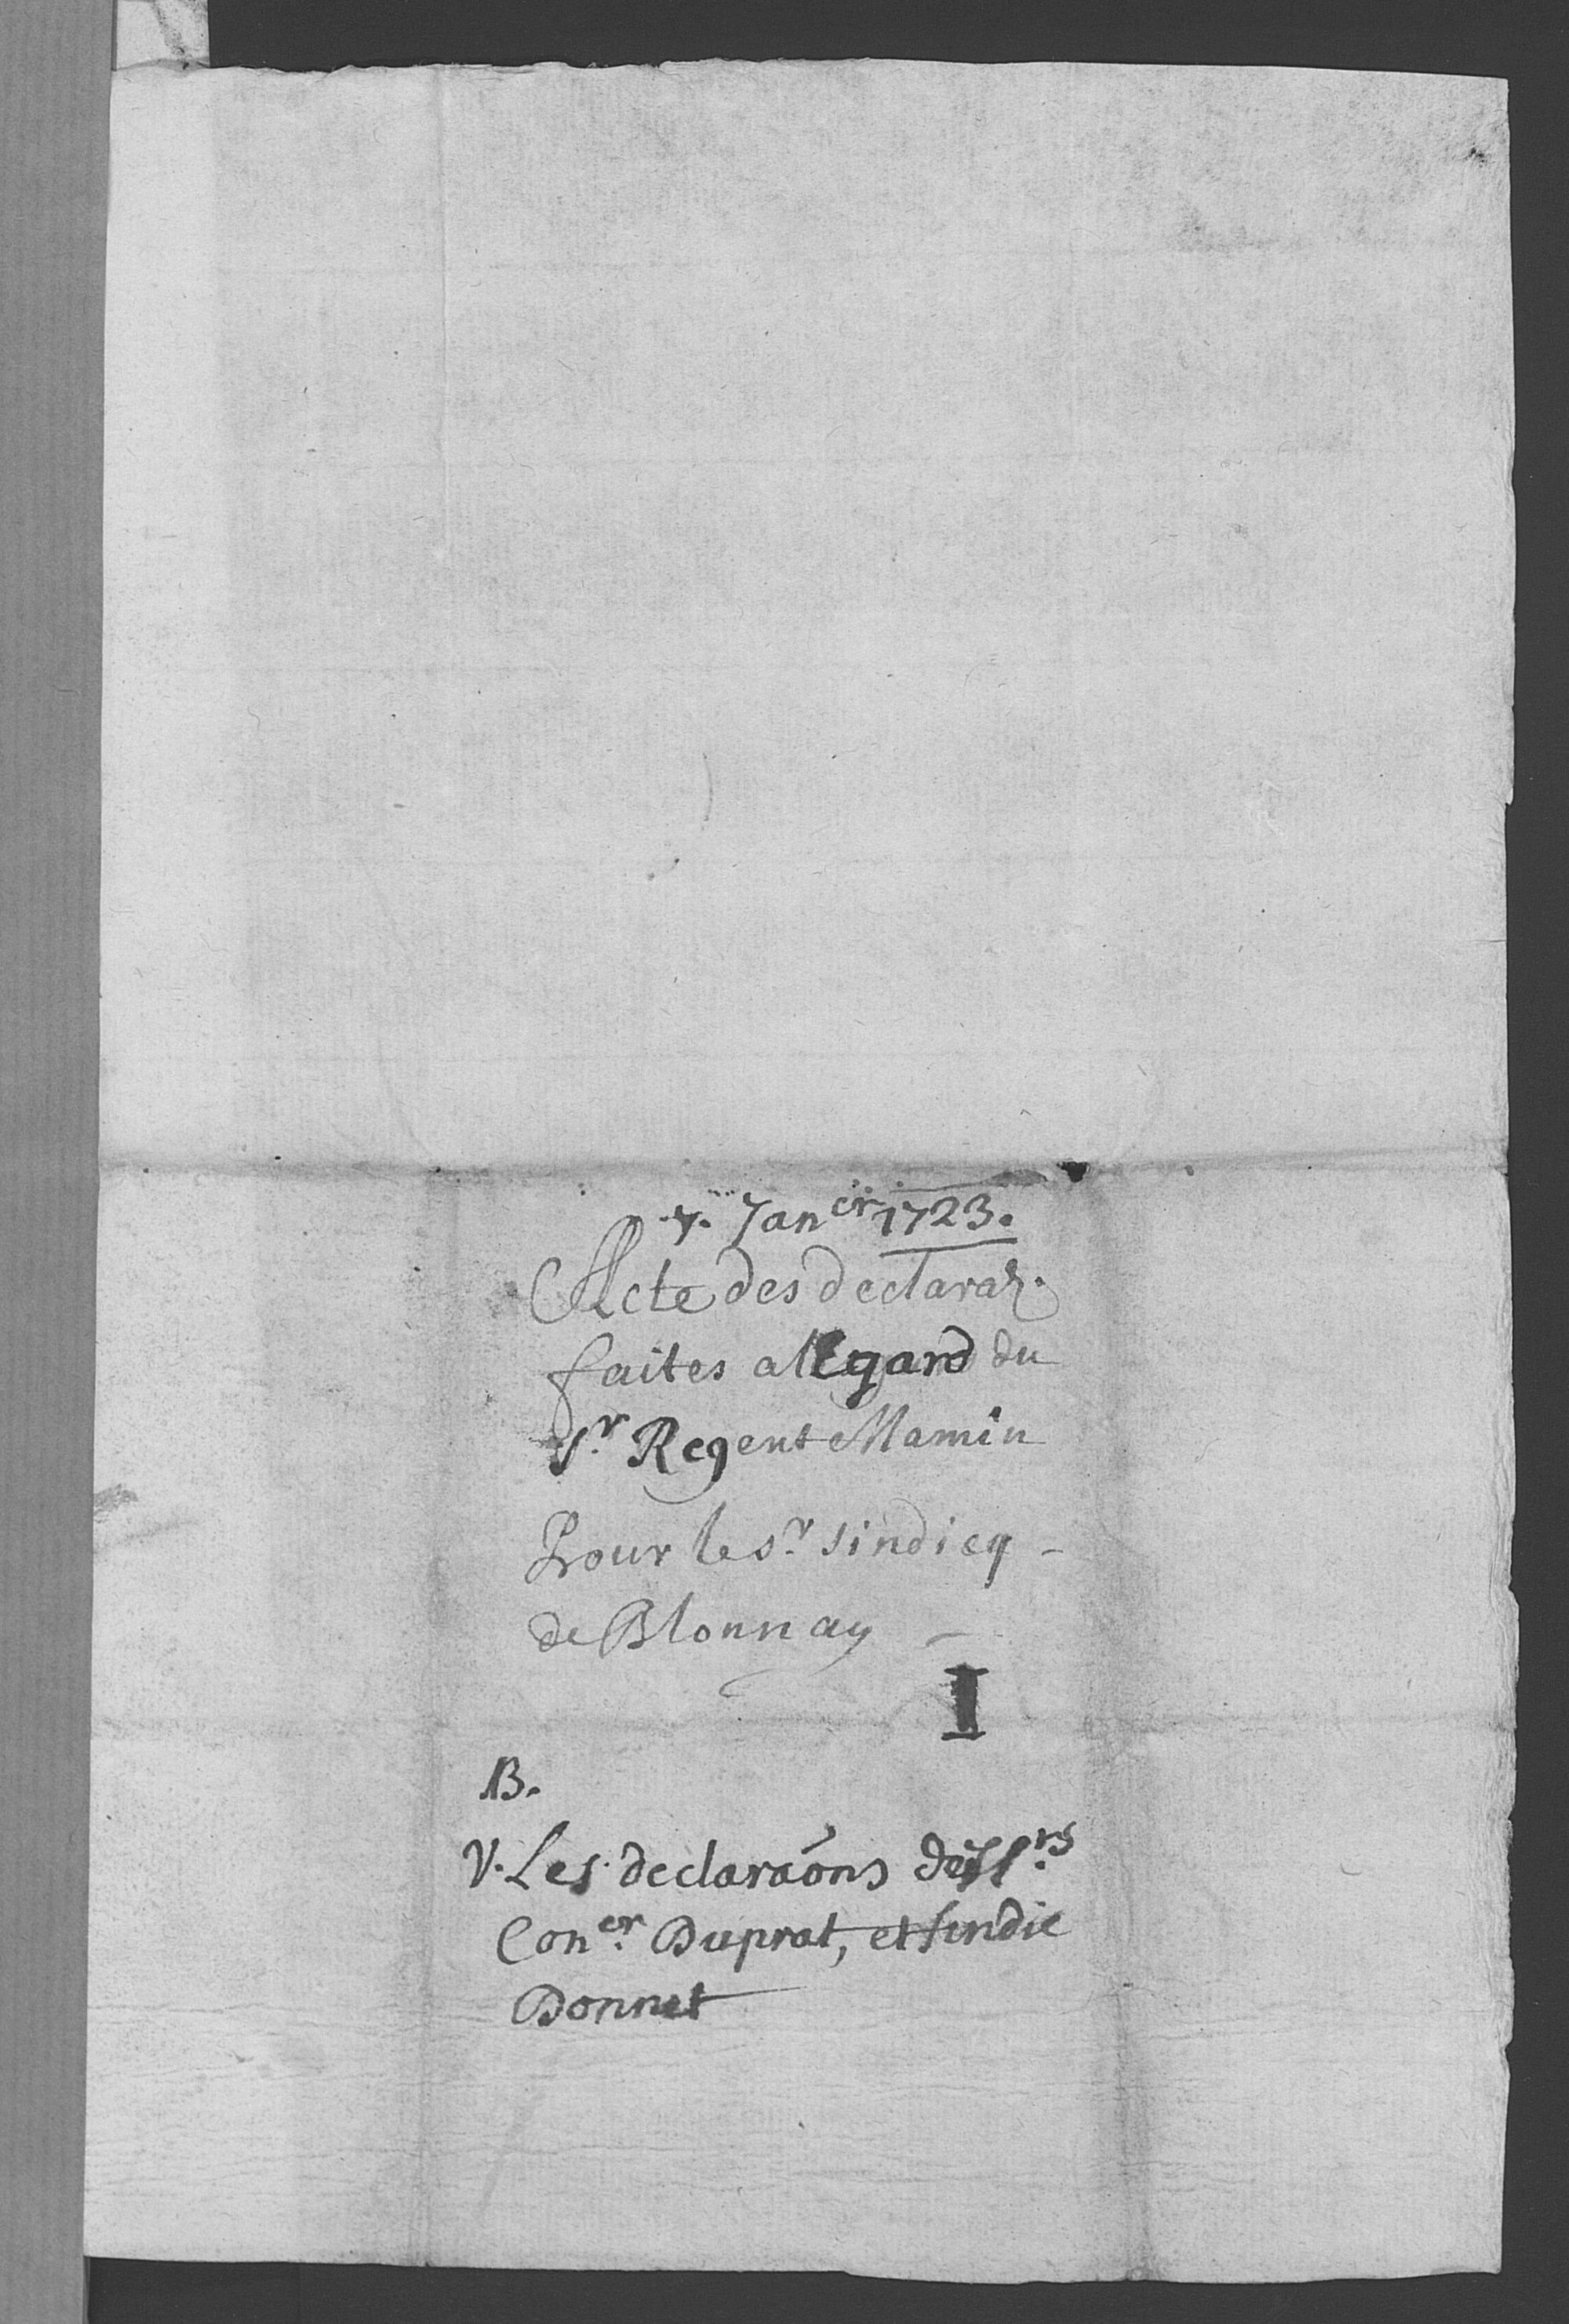 7. Jan.er 1723.
Acte des declaraõ.
faites a l'Egard du
Sr. Regent Mamin
Pour le Sr. sindicq -
de Blonnay -
I
B.
V. Les declaraõns des Srs.
Con.er Duprat, et sindic
Bonnet